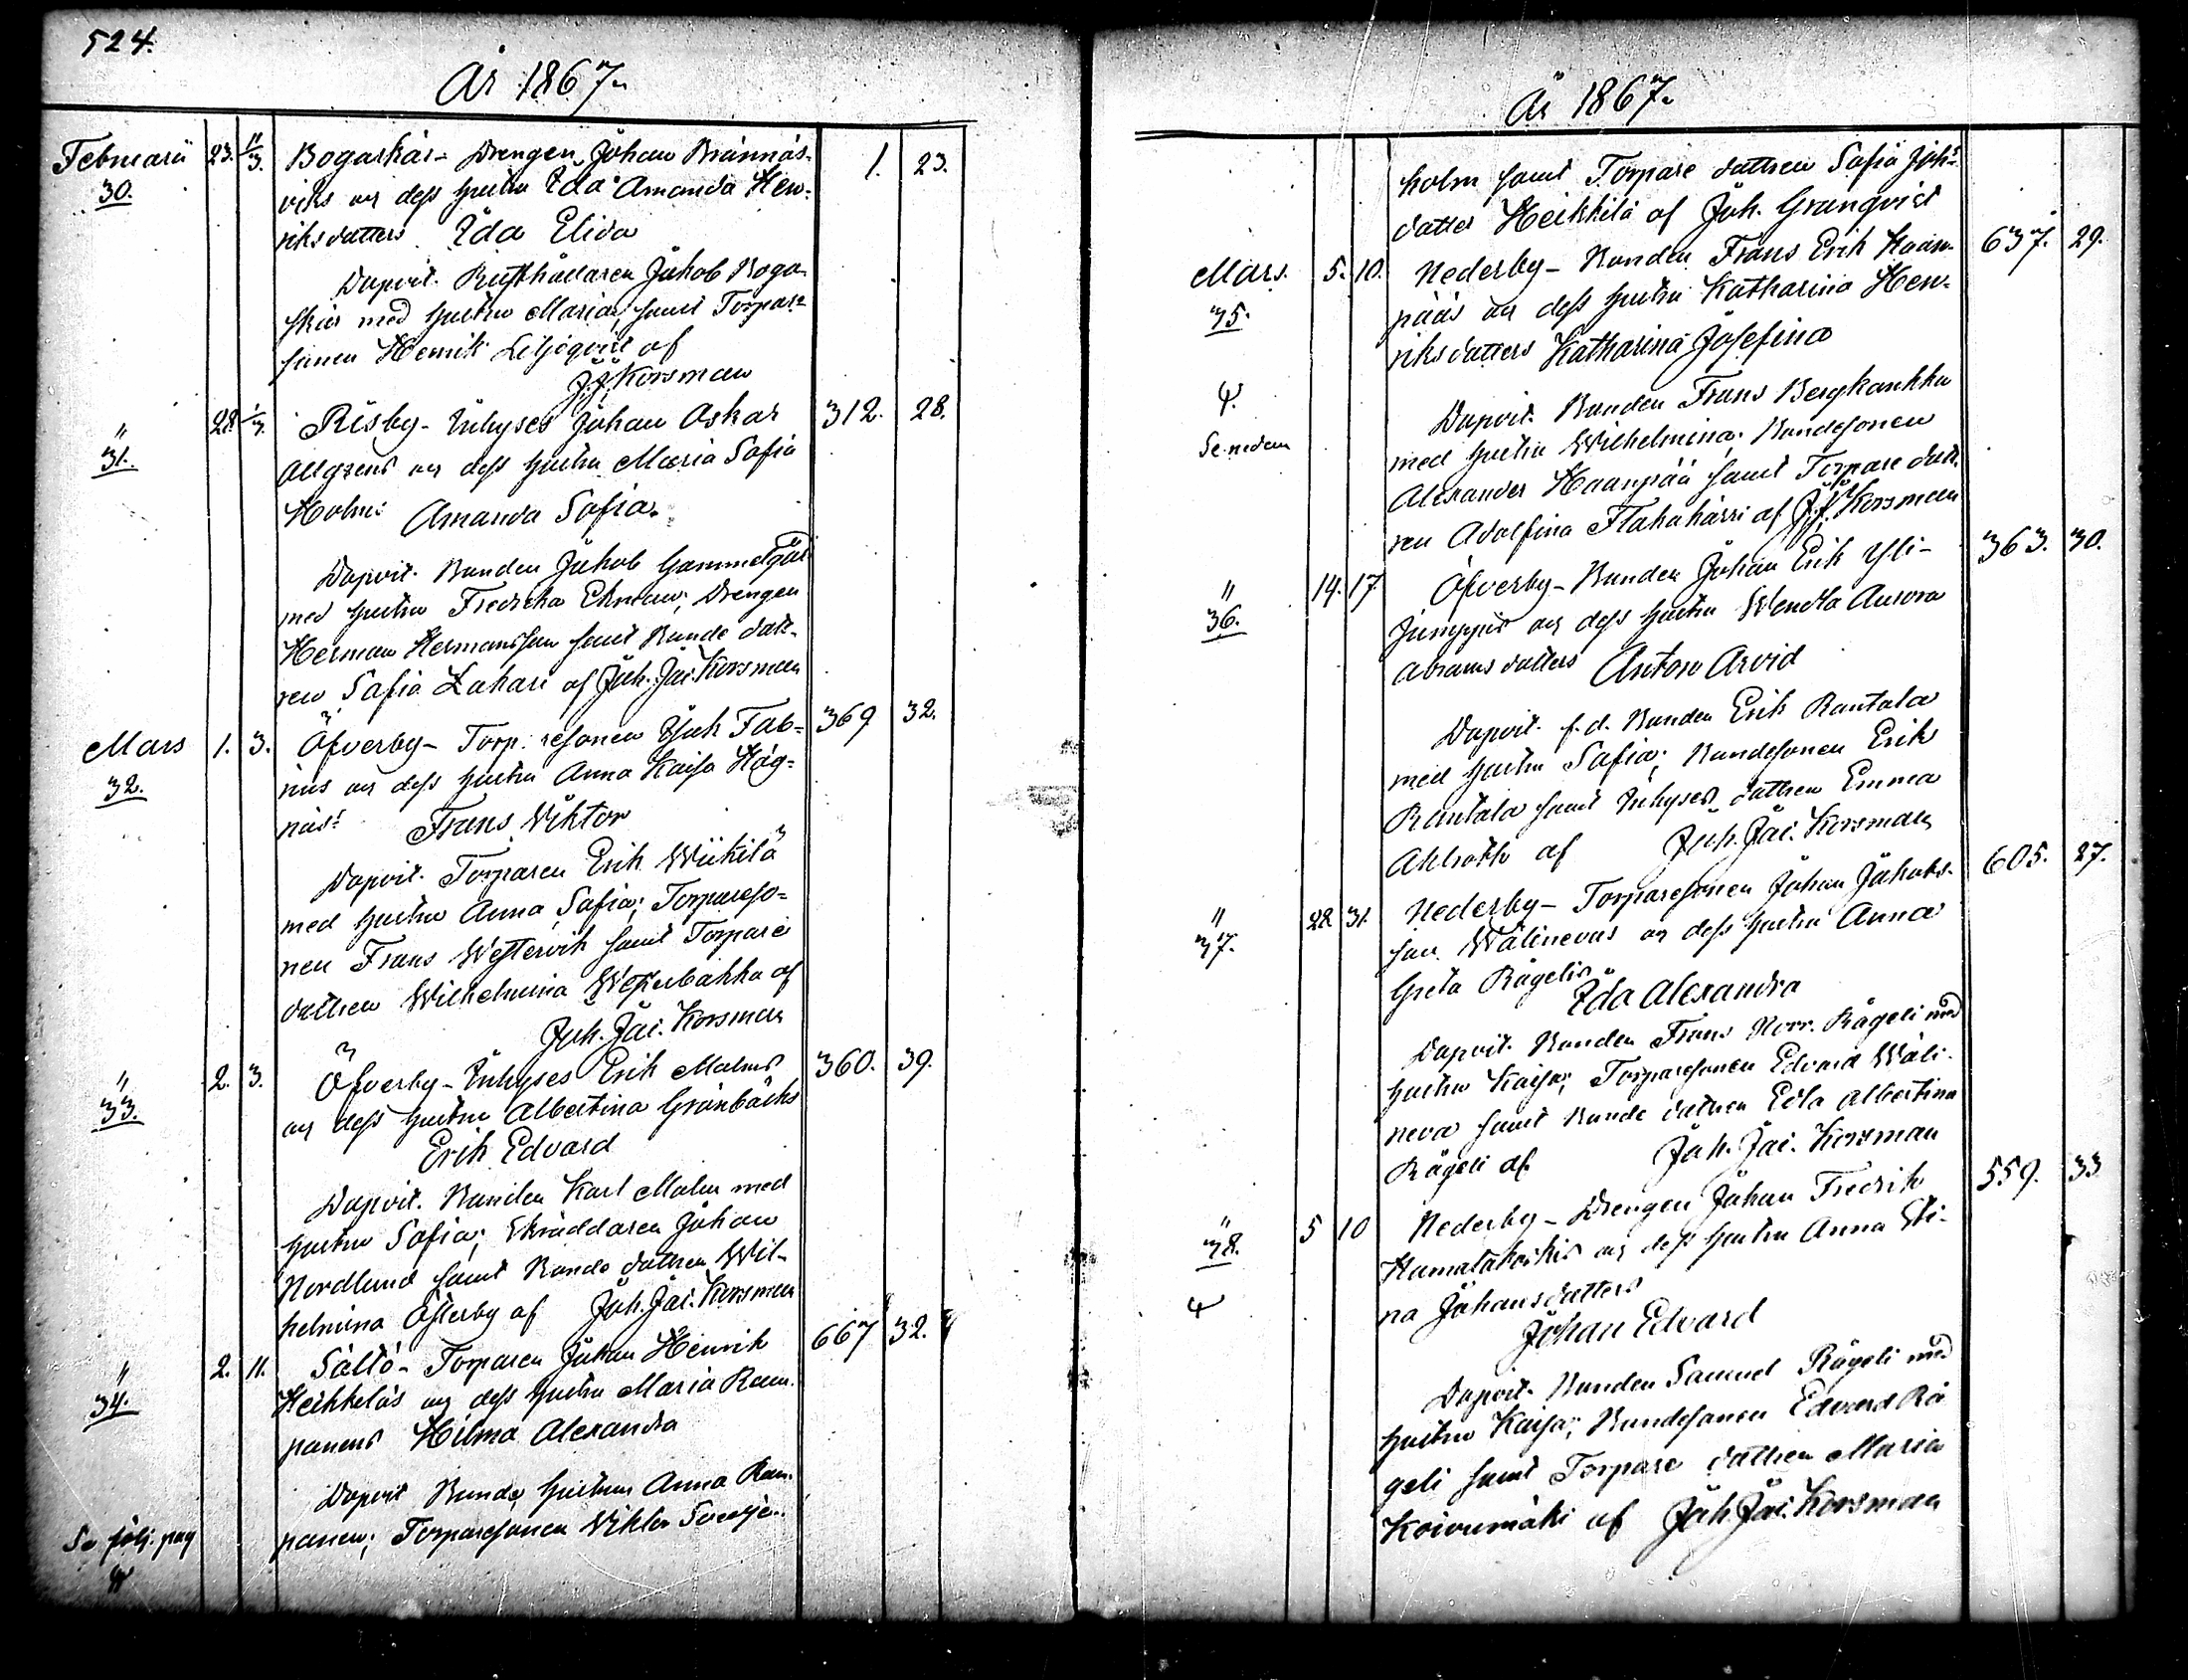 524.
År 1867.
Februarii 23. 11/3. Bogaskär - Drengen Johan Brännäs- 1. 23.
30. viks og dess hustru Ida Amanda Hen-
riksdatters Ida Elida
Dopvit. Rusthållaren Jakob Boga-
skär med hustru Maria; samt Torpare
sonen Henrik Liljeqvist af
J.J. Korsman
" 28. Risby - Inhyses Johan Oskar 312. 28.
31. Allgrens og dess hustru Maria Sofia
Holms Amanda Sofia.
Dopvit. Bonden Jakob Gammelgård
med hustru Fredrika Ekman; Drengen
Herman Hermansson samt Bonde dott-
ren Sofia Lahari af Joh. Jac. Korsman
Mars 1. 3. Öfverby - Torparesonen Isak Fab- 369 32.
32. nus og dess hustru Anna Kaisa Häg-
näs: Frans Viktor
Dopvit. Torparen Erik Wiikilä
med hustru Anna Sofia; Torpareso-
nen Frans Westervik samt Torpare
dottren Wilhelmina Westerbakka af
Joh. Jac. Korsman
" 2. 3. Öfverby - Inhyses Erik Malms 360. 39.
33. og dess hustru Albertina Grönbäcks
Erik Edvard
Dopvit. Bonden Karl Malm med
hustru Sofia; Skräddaren Johan
Nordlund samt Bonde dottren Wil-
helmina Österby af Joh. Jac. Korsman
" 2. 11. Sältö - Torparen Johan Henrik 667 32.
34. Heikkeläs og dess hustru Maria Ram-
panens Hilma Alexandra
Dopvit Bonde hustrun Anna Ram-
panen; Torparesonen Viktor
Se följ. pag
År 1867.
holm samt Torpare dottren Sofia Joh:
dotter Heikkilä af Joh. Granqvist
Mars. 5. 10. Nederby - Bonden Frans Erik Haan- 637. 29.
35. pääs og dess hustru Katharina Hen-
riksdatters Katharina Josefina
Dopvit. Bonden Frans Bergkankku
Se nedan med hustru Wilhelmina; Bondesonen
Alexander Haanpää samt Torpare dott-
ren Adolfina Flakaharri af J.J. Korsman
" 14. 17. Öfverby - Bonden Johan Erik Yli- 363. 30.
36. og dess hustru Wendla Aurora
Abramsdatters Anton Arvid
Dopvit. f.d. Bonden Erik Rautala
med hustru Sofia; Bondesonen Erik
Rautala samt Inhyses dottren Emma
Ahlroth af Joh. Jac. Korsman
" 28 31. Nederby - Torparesonen Johan Jakobs- 605. 27.
37. son Wälinevas og dess hustru Anna
Greta Rågelis Ida Alexandra
Dopvit. Bonden Frans Norr. Rågeli med
hustru Kaisa; Torparesonen Edvard Wäli-
neva samt Bonde dottren Edla Albertina
Rågeli af Joh. Jac. Korsman
" 5 10 Nederby - Drengen Johan Fredrik 559. 33
38. Hamatakoskis og dess hustru Anna Sti-
na Johansdatters
Johan Edvard
Dopvit. Bonden Samuel Rågeli med
hustru Kaisa; Bondesonen Edvard Rå
geli samt Torpare dottren Maria
Koivumäki af Joh. Jac. Korsman